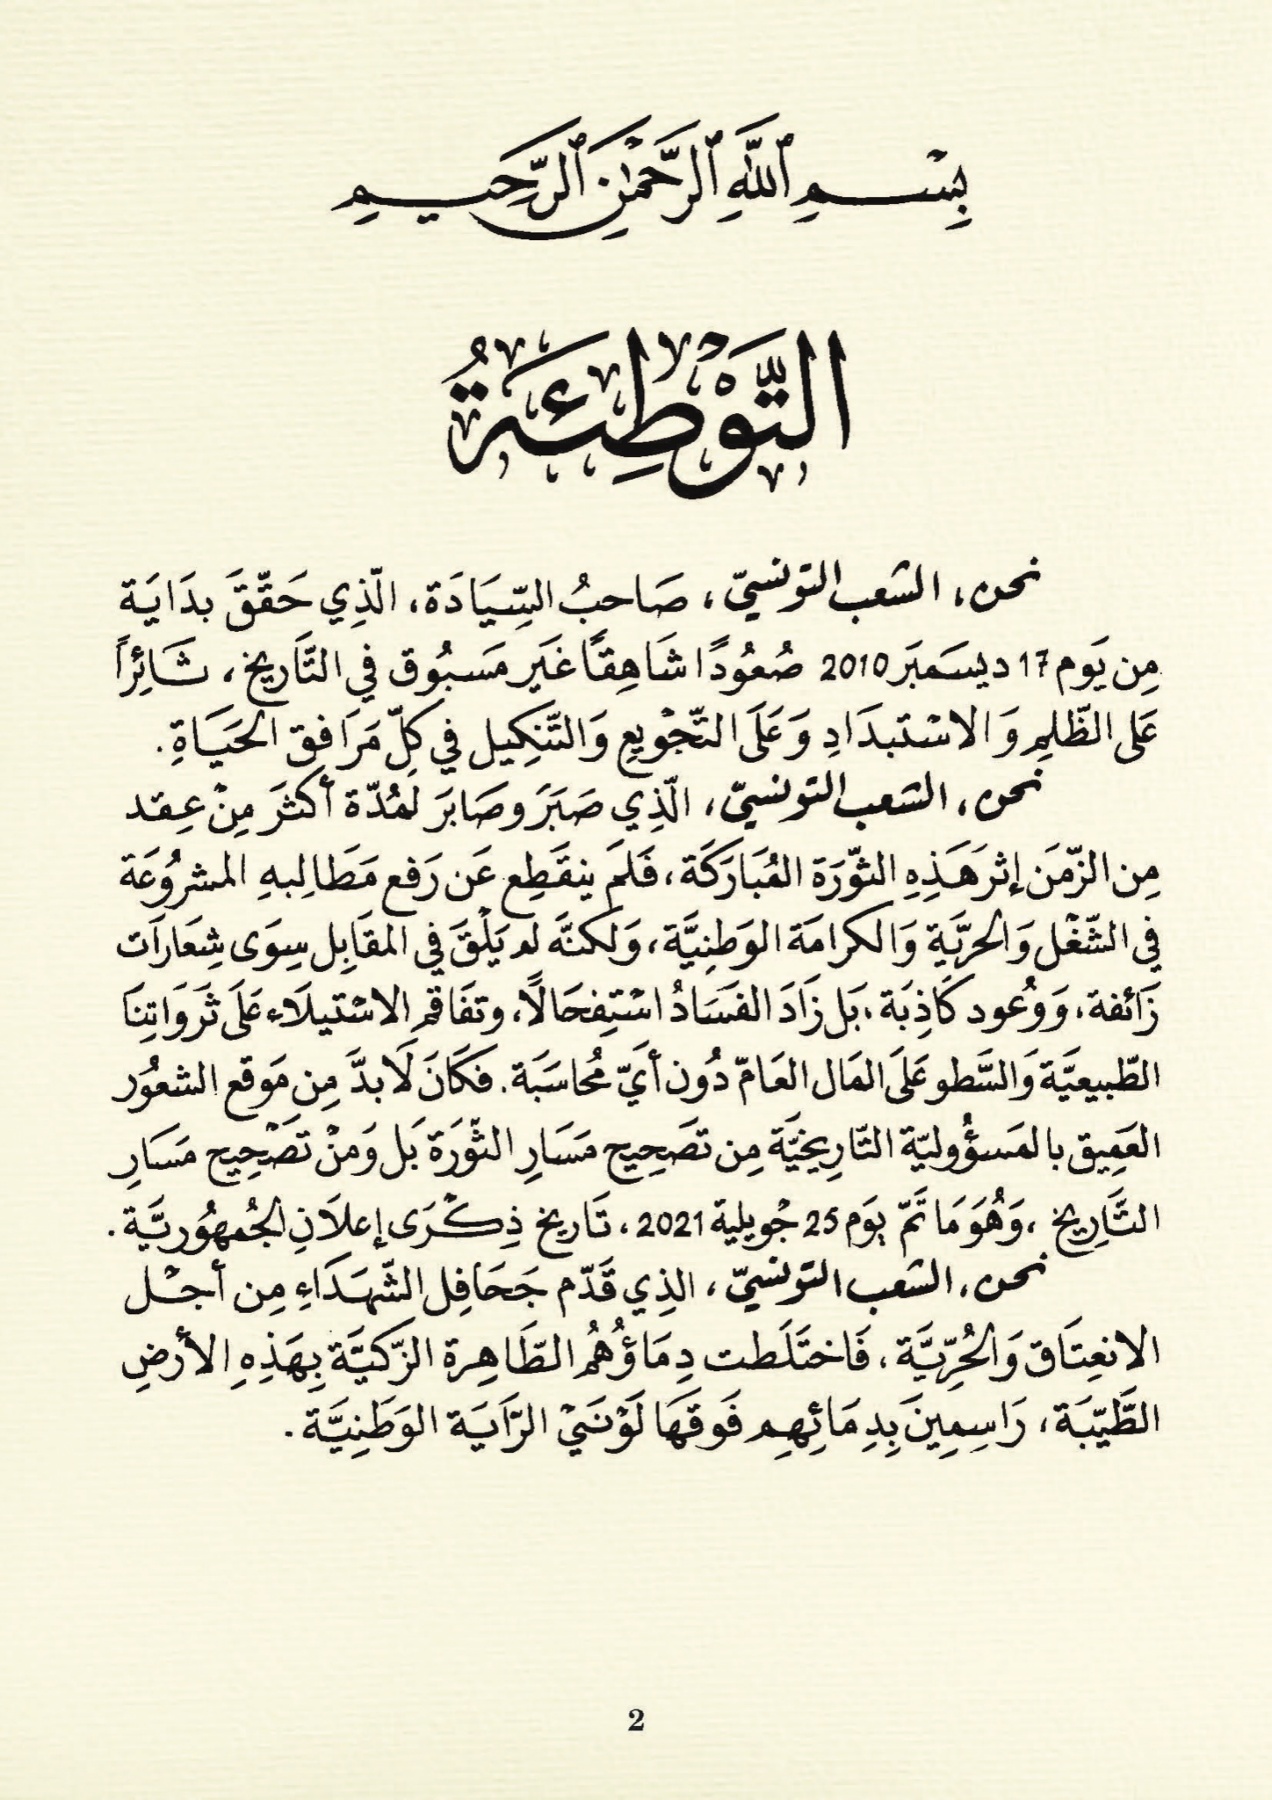 بِسْمِ ٱللَّهِ ٱلرَّحْمَٰنِ ٱلرَّحِيمِ
التَّوْطِئَةُ
نحن، الشعب التونسيّ، صَاحبُ السِّيَادَة، الّذِي حَقّقَ بدَايَة
مِن يَوم 17 ديسَمبَر 2010 صُعُودًا شَاهِقًا غَير مَسبُوق في التَّاريخ، ثَائِرًا
عَلى الظّلمِ وَالاسْتبدَادِ وَعَلَى التّجْويعِ وَالتَّنكِيل في كلّ مَرَافِق الحَيَاةِ.
نحن، الشعب التونسيّ، الّذِي صَبَرَ وصَابَرَ لمُدّة أكثَرَ مِنْ عِقد
مِن الزّمَن إثرَ هَذِهِ الثّورَة المُبَارَكَة، فَلَم ينقَطِع عَن رَفع مَطَالِبهِ المشرُوعَة
في الشّغْل وَالحرّيَّةِ وَالكرامَة الوَطِنِيَّة، وَلكنَّه لم يَلْقَ في المقَابِل سِوَى شِعَارَات
زَائفة، وَوُعود كَاذِبَة، بَل زَادَ الفَسَادُ اسْتِفحَالًا، وتفَاقم الاسْتيلَاء عَلَى ثَرَوَاتِنَا
الطّبيعيَّة وَالسَّطو عَلَى المَال العَامّ دُون أيّ مُحاسَبَة. فكَانَ لَا بدَّ مِن مَوقع الشعُور
العَمِيق بالمَسؤُوليّة التّارِيخيَّة مِن تصَحِيح مَسَارِ الثّورَة بَل وَمنْ تصْحِيح مَسَارِ
التَّارِيخ، وَهُوَ مَا تَمّ يَوم 25 جْويلية 2021، تَاريخ ذِكْرَى إعلَانِ الجُمهُوريَّة.
نحن، الشعب التونسيّ، الذِي قَدّم جَحَافِل الشّهَدَاءِ مِن أجْل
الانعِتَاق وَالحُرِّيَّة، فَاختَلَطت دِمَاؤُهُمُ الطَّاهِرة الزّكيَّة بِهَذِهِ الأرْضِ
الطَّيّبَة، رَاسِمِينَ بِدِمَائِهِم فَوقهَا لَوْنَيْ الرّايَة الوَطَنِيَّة.
2